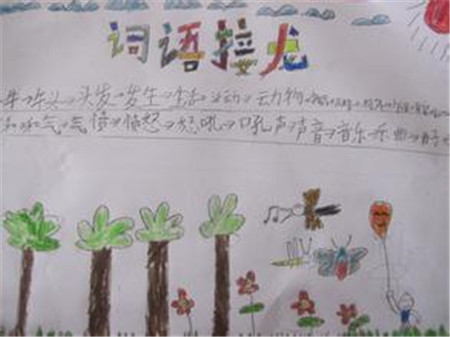 词语接龙
车头→头发→发生→生活→活动→动物→
和气→气愤→愤怒→怒吼→吼声→声音→音乐→乐曲→曲子